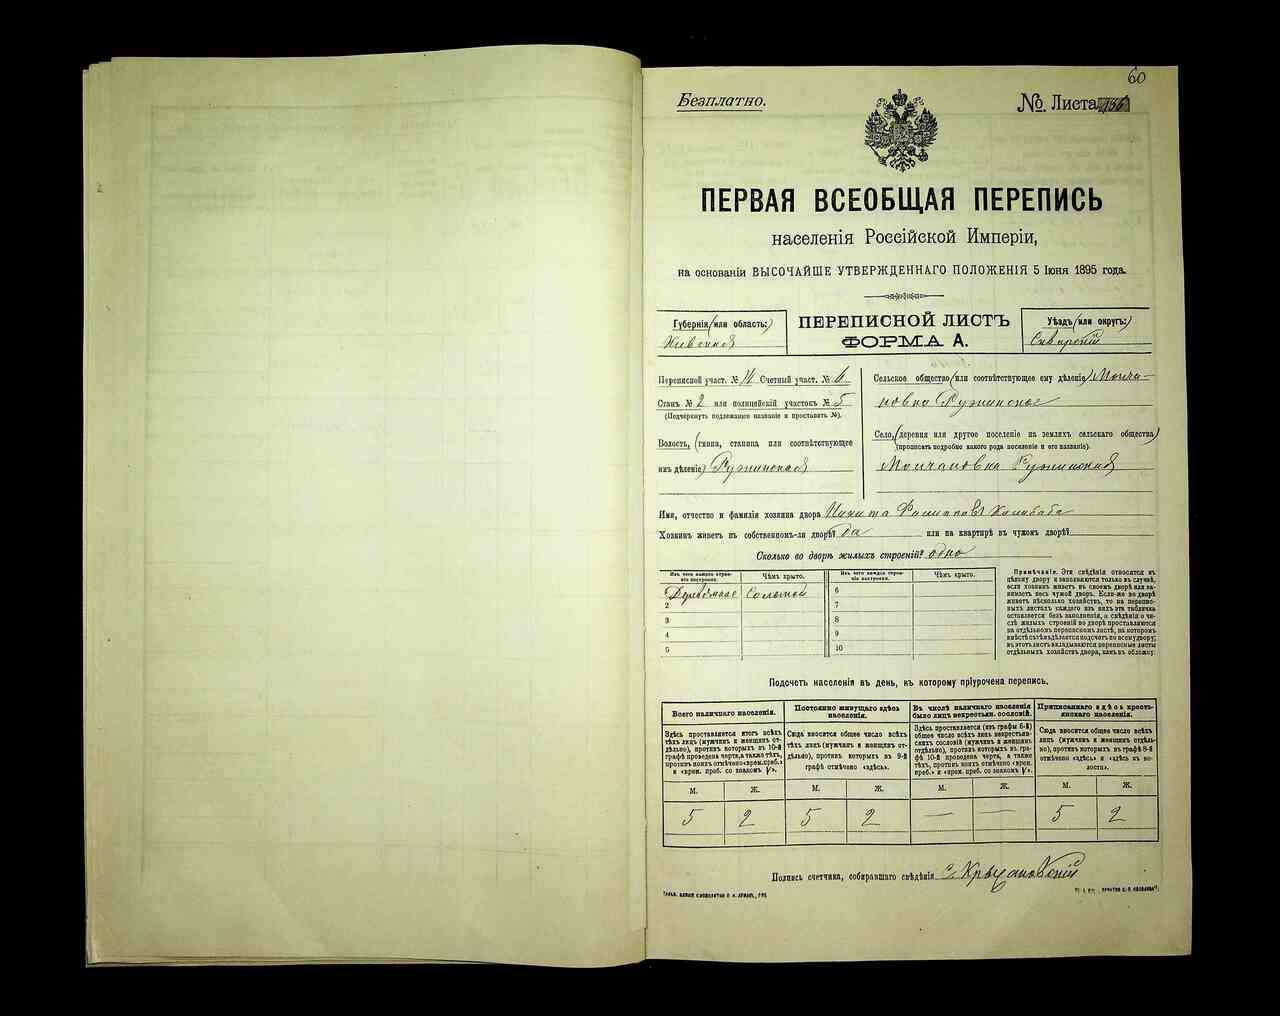 60
Безплатно.
№. Листа 136
ПЕРВАЯ ВСЕОБЩАЯ ПЕРЕПИСЬ
населенія Россійской Имперіи,
на основаніи ВЫСОЧАЙШЕ УТВЕРЖДЕННАГО ПОЛОЖЕНІЯ 5 Іюня 1895 года.
Губернія (или область:)
Кіевская
ПЕРЕПИСНОЙ ЛИСТЪ
ФОРМА А.
Уѣздъ (или округъ:)
Сквирскій
Переписной участ. № 14 Счетный участ. № 6
Станъ № 2 или полицейскій участокъ № 5
(Подчеркнуть подлежащее названіе и проставить №).
Волость, (гмина, станица или соотвѣтствующее
имъ дѣленіе) Ружинская
Сельское общество (или соотвѣтствующее ему дѣленіе) Молча-
новка Ружинская
Село, (деревня или другое поселеніе на земляхъ сельскаго общества)
(прописать подробно какого рода поселеніе и его названіе).
Молчановка Ружинская
Имя, отчество и фамилія хозяина двора Никита
Хозяинъ живетъ въ собственномъ-ли дворѣ? да или на квартирѣ въ чужомъ дворѣ?
Сколько во дворѣ жилыхъ строеній? одно
Изъ чего каждое строеніе построено.
Чѣмъ крыто.
Изъ чего каждое строеніе построено.
Чѣмъ крыто.
Соломой
2
3
4
5
6
7
8
9
10
Примѣчаніе. Эти свѣдѣнія относятся къ
цѣлому двору и заполняются только въ случаѣ,
если хозяинъ живетъ въ своемъ дворѣ или за-
нимаетъ весь чужой дворъ. Если-же во дворѣ
живетъ нѣсколько хозяйствъ, то на перепис-
ныхъ листахъ каждаго изъ нихъ эта табличка
оставляется безъ заполненія, а свѣдѣнія о чи-
слѣ жилыхъ строеній во дворѣ проставляются
на отдѣльномъ переписномъ листѣ, на которомъ
вмѣстѣ съ тѣмъ дѣлается подсчетъ по всему двору;
въ этотъ листъ вкладываются переписные листы
отдѣльныхъ хозяйствъ двора, какъ въ обложку.
Подсчетъ населенія въ день, къ которому пріурочена перепись.
Всего наличнаго населенія.
Постоянно живущаго здѣсь населенія.
Въ числѣ наличнаго населенія было лицъ некрестьян. сословій.
Приписаннаго здѣсь крестьянскаго населенія.
Здѣсь проставляется итогъ всѣхъ
тѣхъ лицъ (мужчинъ и женщинъ от-
дѣльно), противъ которыхъ въ 10-й
графѣ проведена черта, а также тѣхъ,
противъ коихъ отмѣчено «врем. преб.»
и «врем. преб. со знакомъ V».
Сюда вносится общее число всѣхъ
тѣхъ лицъ (мужчинъ и женщинъ от-
дѣльно), противъ которыхъ въ 9-й
графѣ отмѣчено «здѣсь».
Здѣсь проставляется (изъ графы 6-й)
общее число всѣхъ лицъ некрестьян-
скихъ сословій (мужчинъ и женщинъ
отдѣльно), противъ которыхъ въ гра-
фѣ 10-й проведена черта, а также
тѣхъ, противъ коихъ отмѣчено «врем.
преб.» и «врем. преб. со знакомъ V».
Сюда вносится общее число всѣхъ
лицъ (мужчинъ и женщинъ отдѣль-
но), противъ которыхъ въ графѣ 8-й
отмѣчено «здѣсь» и «здѣсь въ во-
лости».
М. Ж. М. Ж. М. Ж. М. Ж.
5 2 5 2 — — 5 2
Подпись счетчика, собиравшаго свѣдѣнія